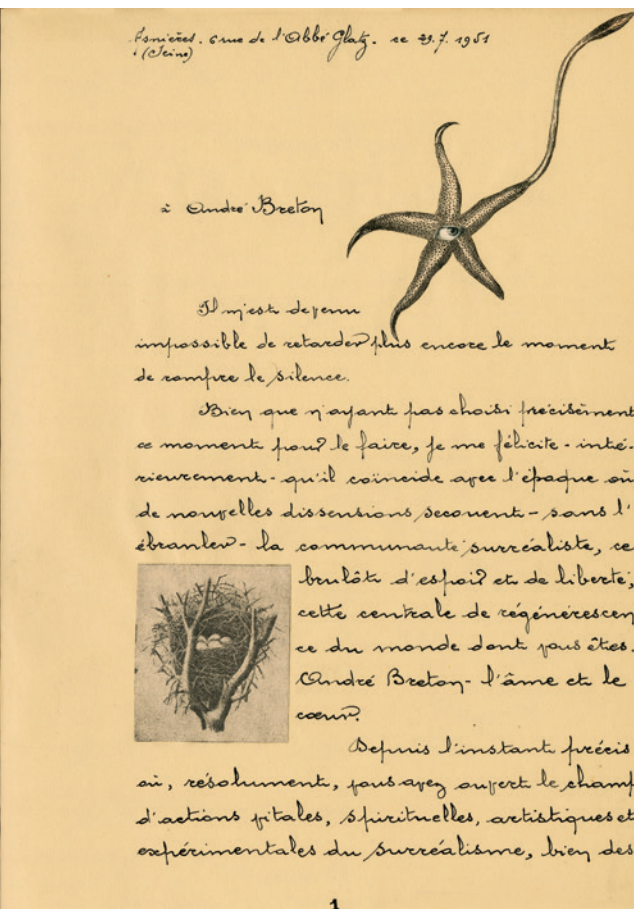 Asnières. 6 rue de l'Abbé Glatz. ce 29.7.1951
(Seine)
à André Breton
Il m'est devenu
impossible de retarder plus encore le moment
de rompre le silence.
Bien que n'ayant pas choisi précisément
ce moment pour le faire, je me félicite - inté-
rieurement - qu'il coïncide avec l'époque où
de nouvelles dissensions secouent - sans l'
ébranler - la communauté surréaliste, ce
brulôt d'espoir et de liberté,
cette centrale de régénérescen
ce du monde dont vous êtes.
André Breton - l'âme et le
cœur.
Depuis l'instant précis
où, résolument, vous avez ouvert le champ
d'actions vitales, spirituelles, artistiques et
expérimentales du surréalisme, bien des
1